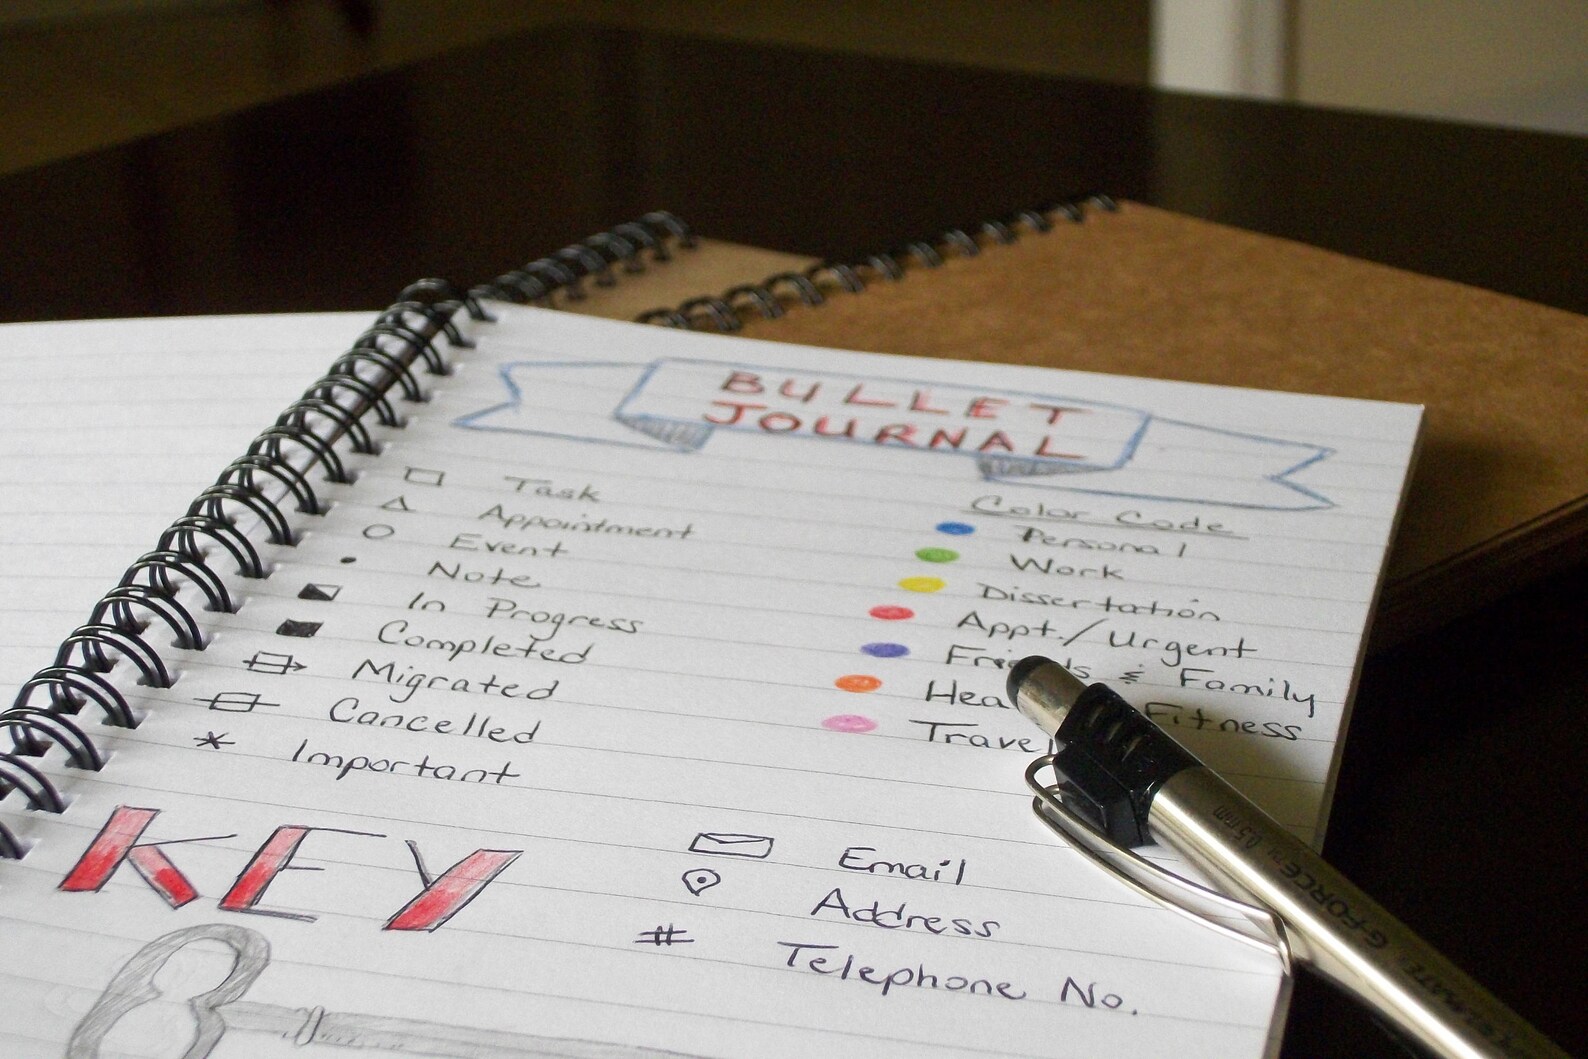 BULLET
JOURNAL
Task
Appointment
Event
Note
In Progress
Completed
Migrated
Cancelled
* Important
Color Code
Personal
Work
Dissertation
Appt./Urgent
Friends & Family
Hea Fitness
Travel
KEY
Email
Address
# Telephone No.
G-FORCE™ 0.5mm